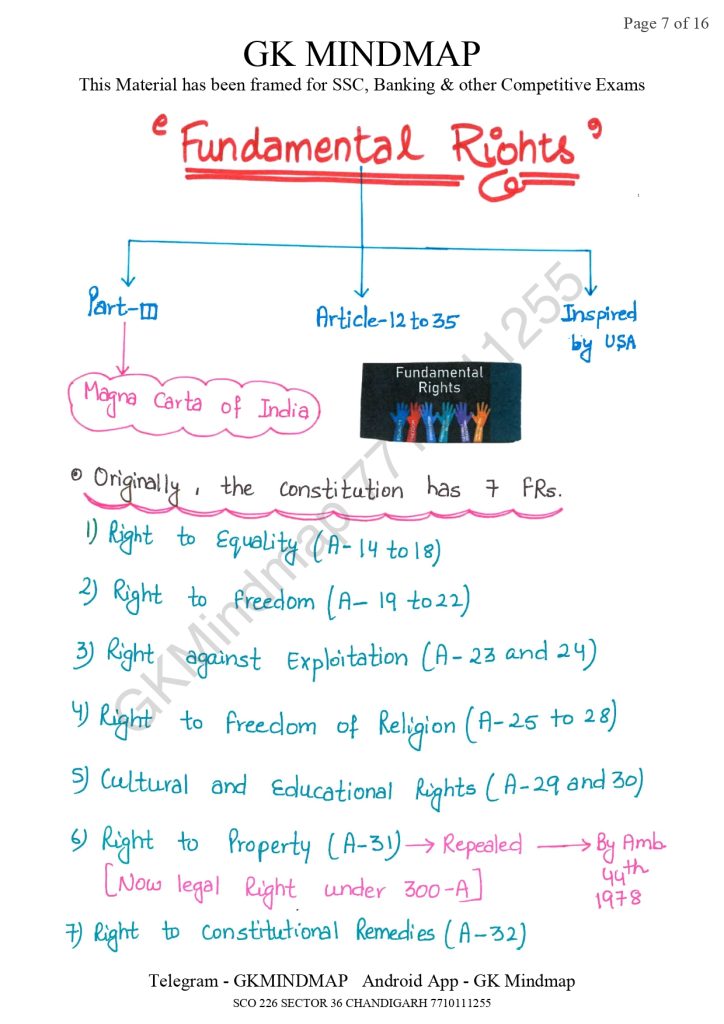 Page 7 of 16
GK MINDMAP
This Material has been framed for SSC, Banking & other Competitive Exams
"Fundamental Rights"
Part-III
Article-12 to 35
Inspired
by USA
Magna Carta of India
Fundamental
Rights
Originally, the constitution has 7 FRs.
1) Right to Equality (A-14 to 18)
2) Right to freedom (A- 19 to 22)
3) Right against Exploitation (A-23 and 24)
4) Right to freedom of Religion (A-25 to 28)
5) Cultural and Educational Rights (A-29 and 30)
6) Right to Property (A-31) → Repealed → By Amb.
44th
1978
[Now legal Right under 300-A]
7) Right to Constitutional Remedies (A-32)
GKMindmap 7710111255
Telegram - GKMINDMAP Android App - GK Mindmap
SCO 226 SECTOR 36 CHANDIGARH 7710111255